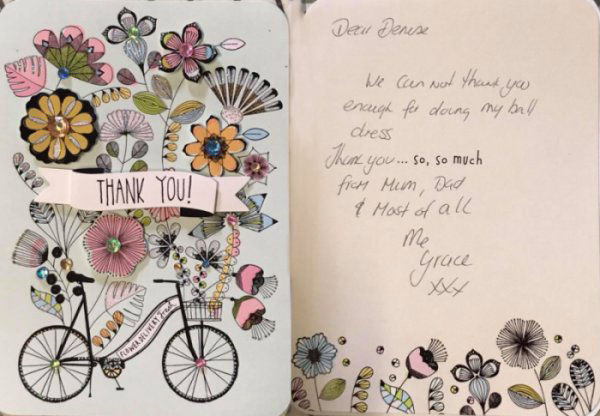 THANK YOU!
FLOWER DELIVERY
Dear Denise
We can not thank you
enough for doing my ball
dress
Thank you... so, so much
from Mum, Dad
& Most of all
Me
Grace
xxx